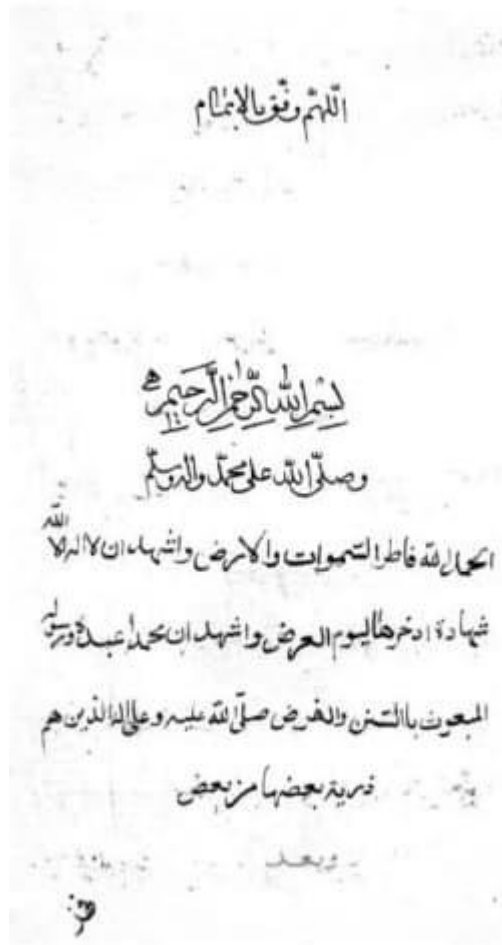 اللهم وفق بالاتمام
بسم الله الرحمن الرحيم
وصلى الله على محمد واله وسلم
الحمد لله فاطر السموات والارض واشهد ان لا اله الا الله
شهادة ادخرها ليوم العرض واشهد ان محمدا عبده ورسوله
المبعوث بالسنن والفرض صلى الله عليه وعلى اله الذين هم
ذرية بعضها من بعض
وبعد